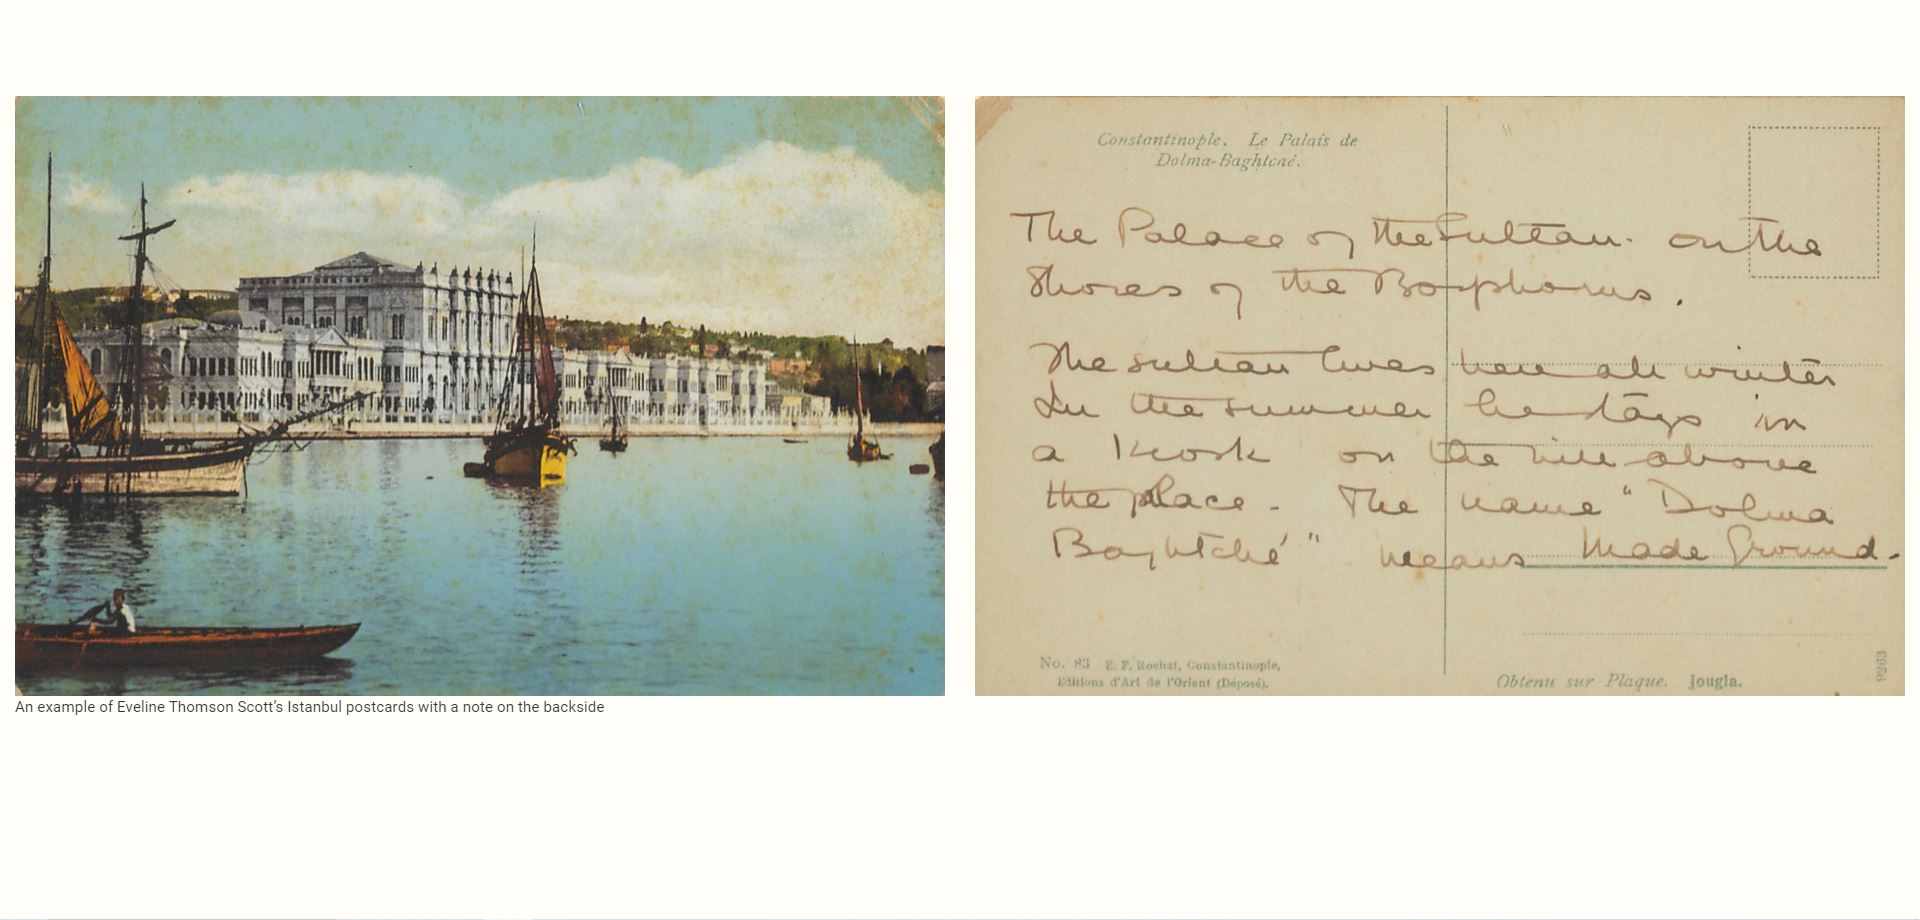 An example of Eveline Thomson Scott’s Istanbul postcards with a note on the backside
Constantinople. Le Palais de
Dolma-Baghtché.
The Palace of the Sultan. on the
Shores of the Bosphorus.
The sultan lives here all winter
In the summer he stays in
a Kiosk on the hill above
the place. The name "Dolma
Baghtché" means Made Ground.
No. 83 E. F. Rochat, Constantinople,
Editions d'Art de l'Orient (Déposé).
Obtenu sur Plaque. Jougla.
9263